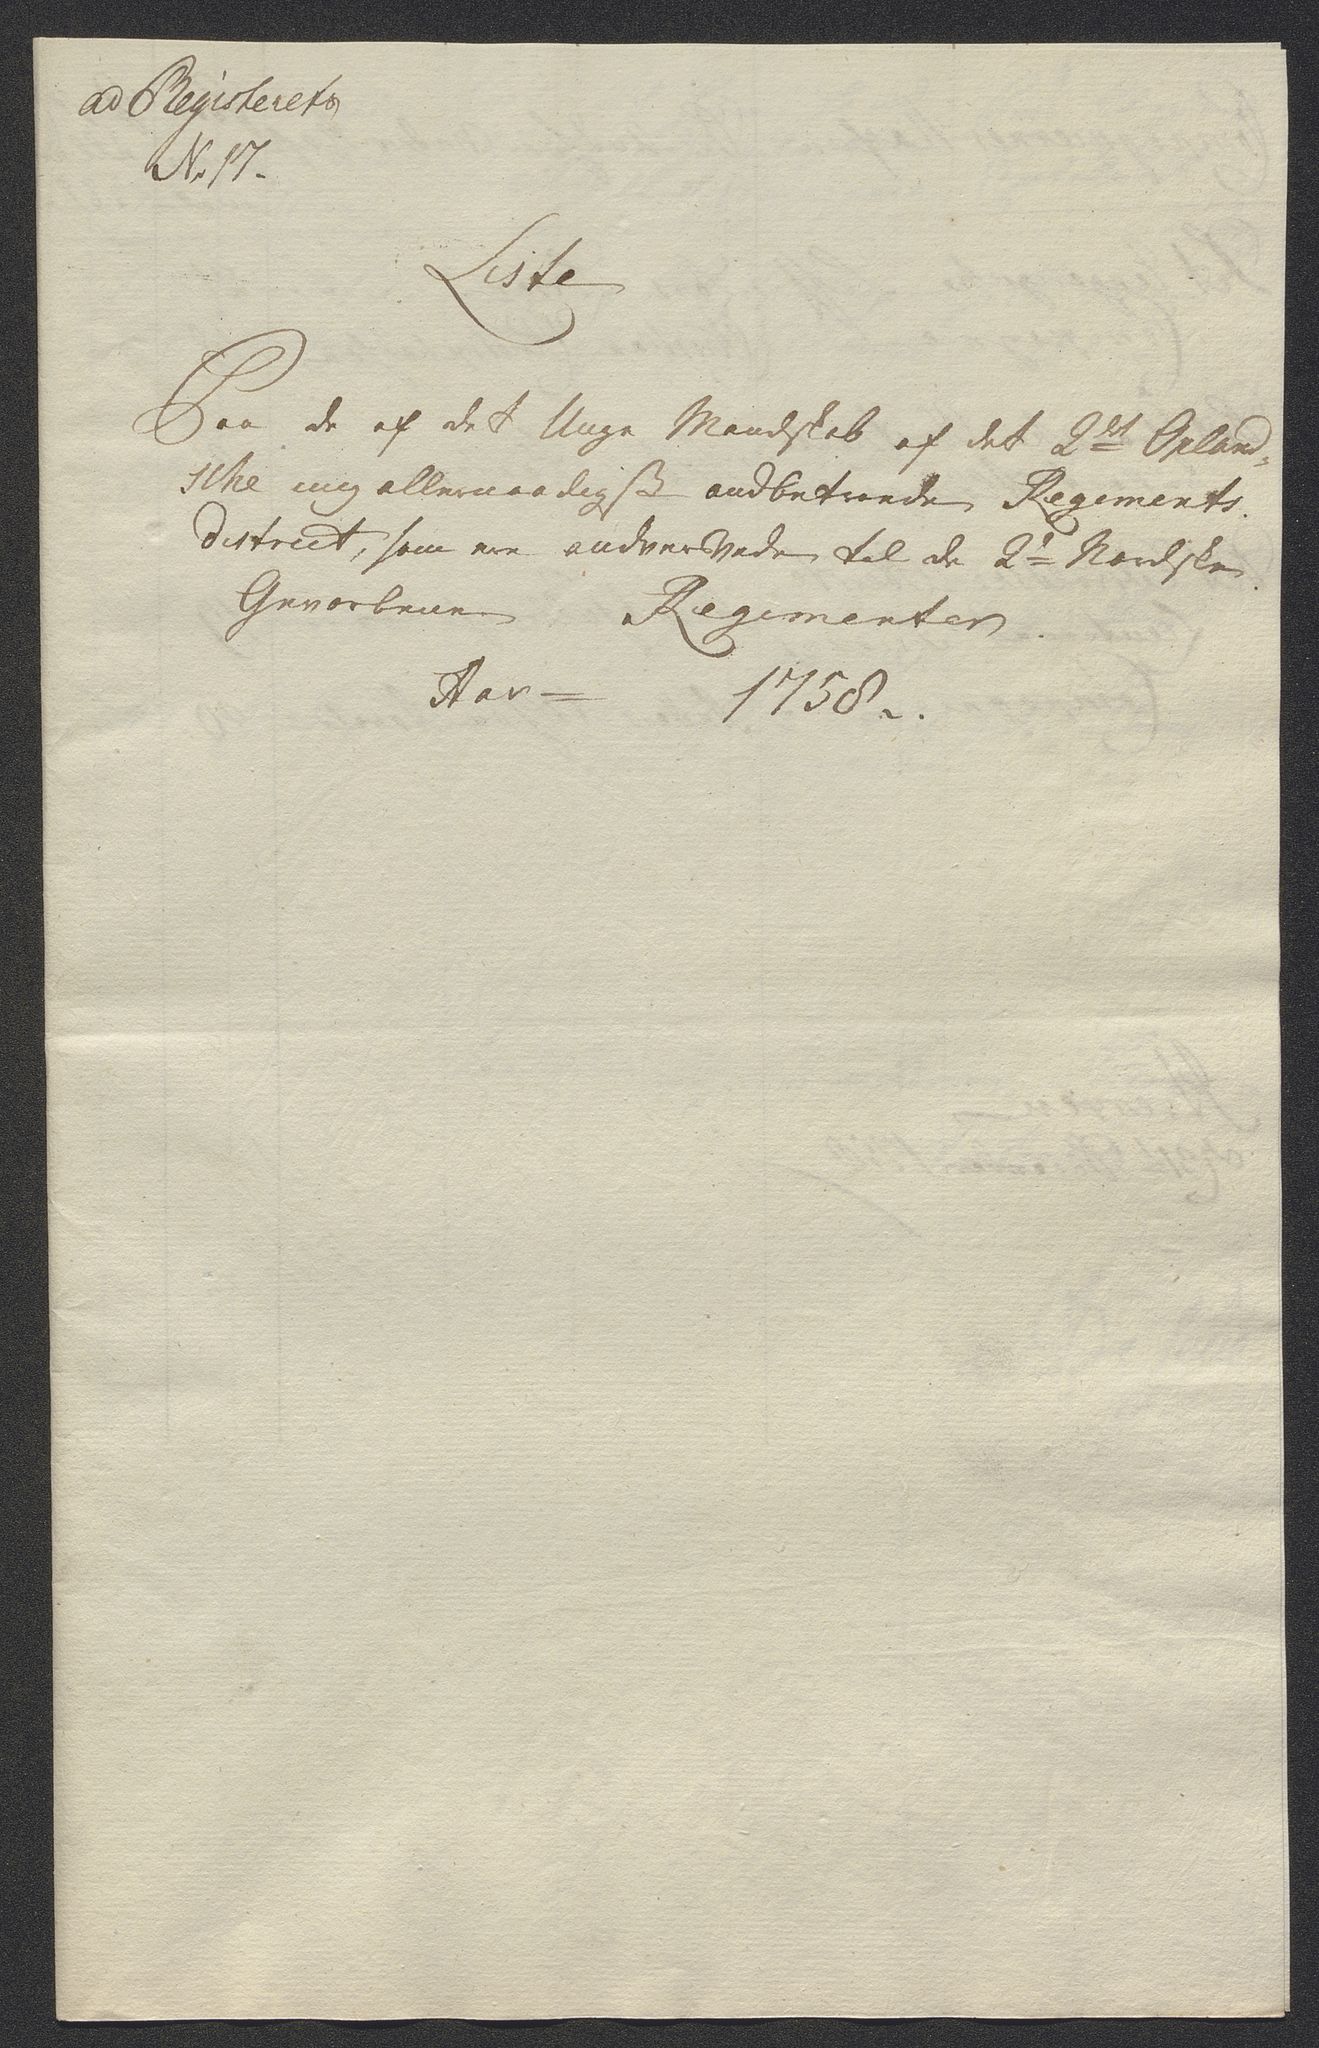 ad Registerets
No 17.
Liste
Paa de af det Unge Mandskab af det 2det Opland=
ske mig allernaadigst andbetroede Regiments
District, som ere andvervede til de 2de Nordske
Gevorbene Regimenter
Aar = 1758.